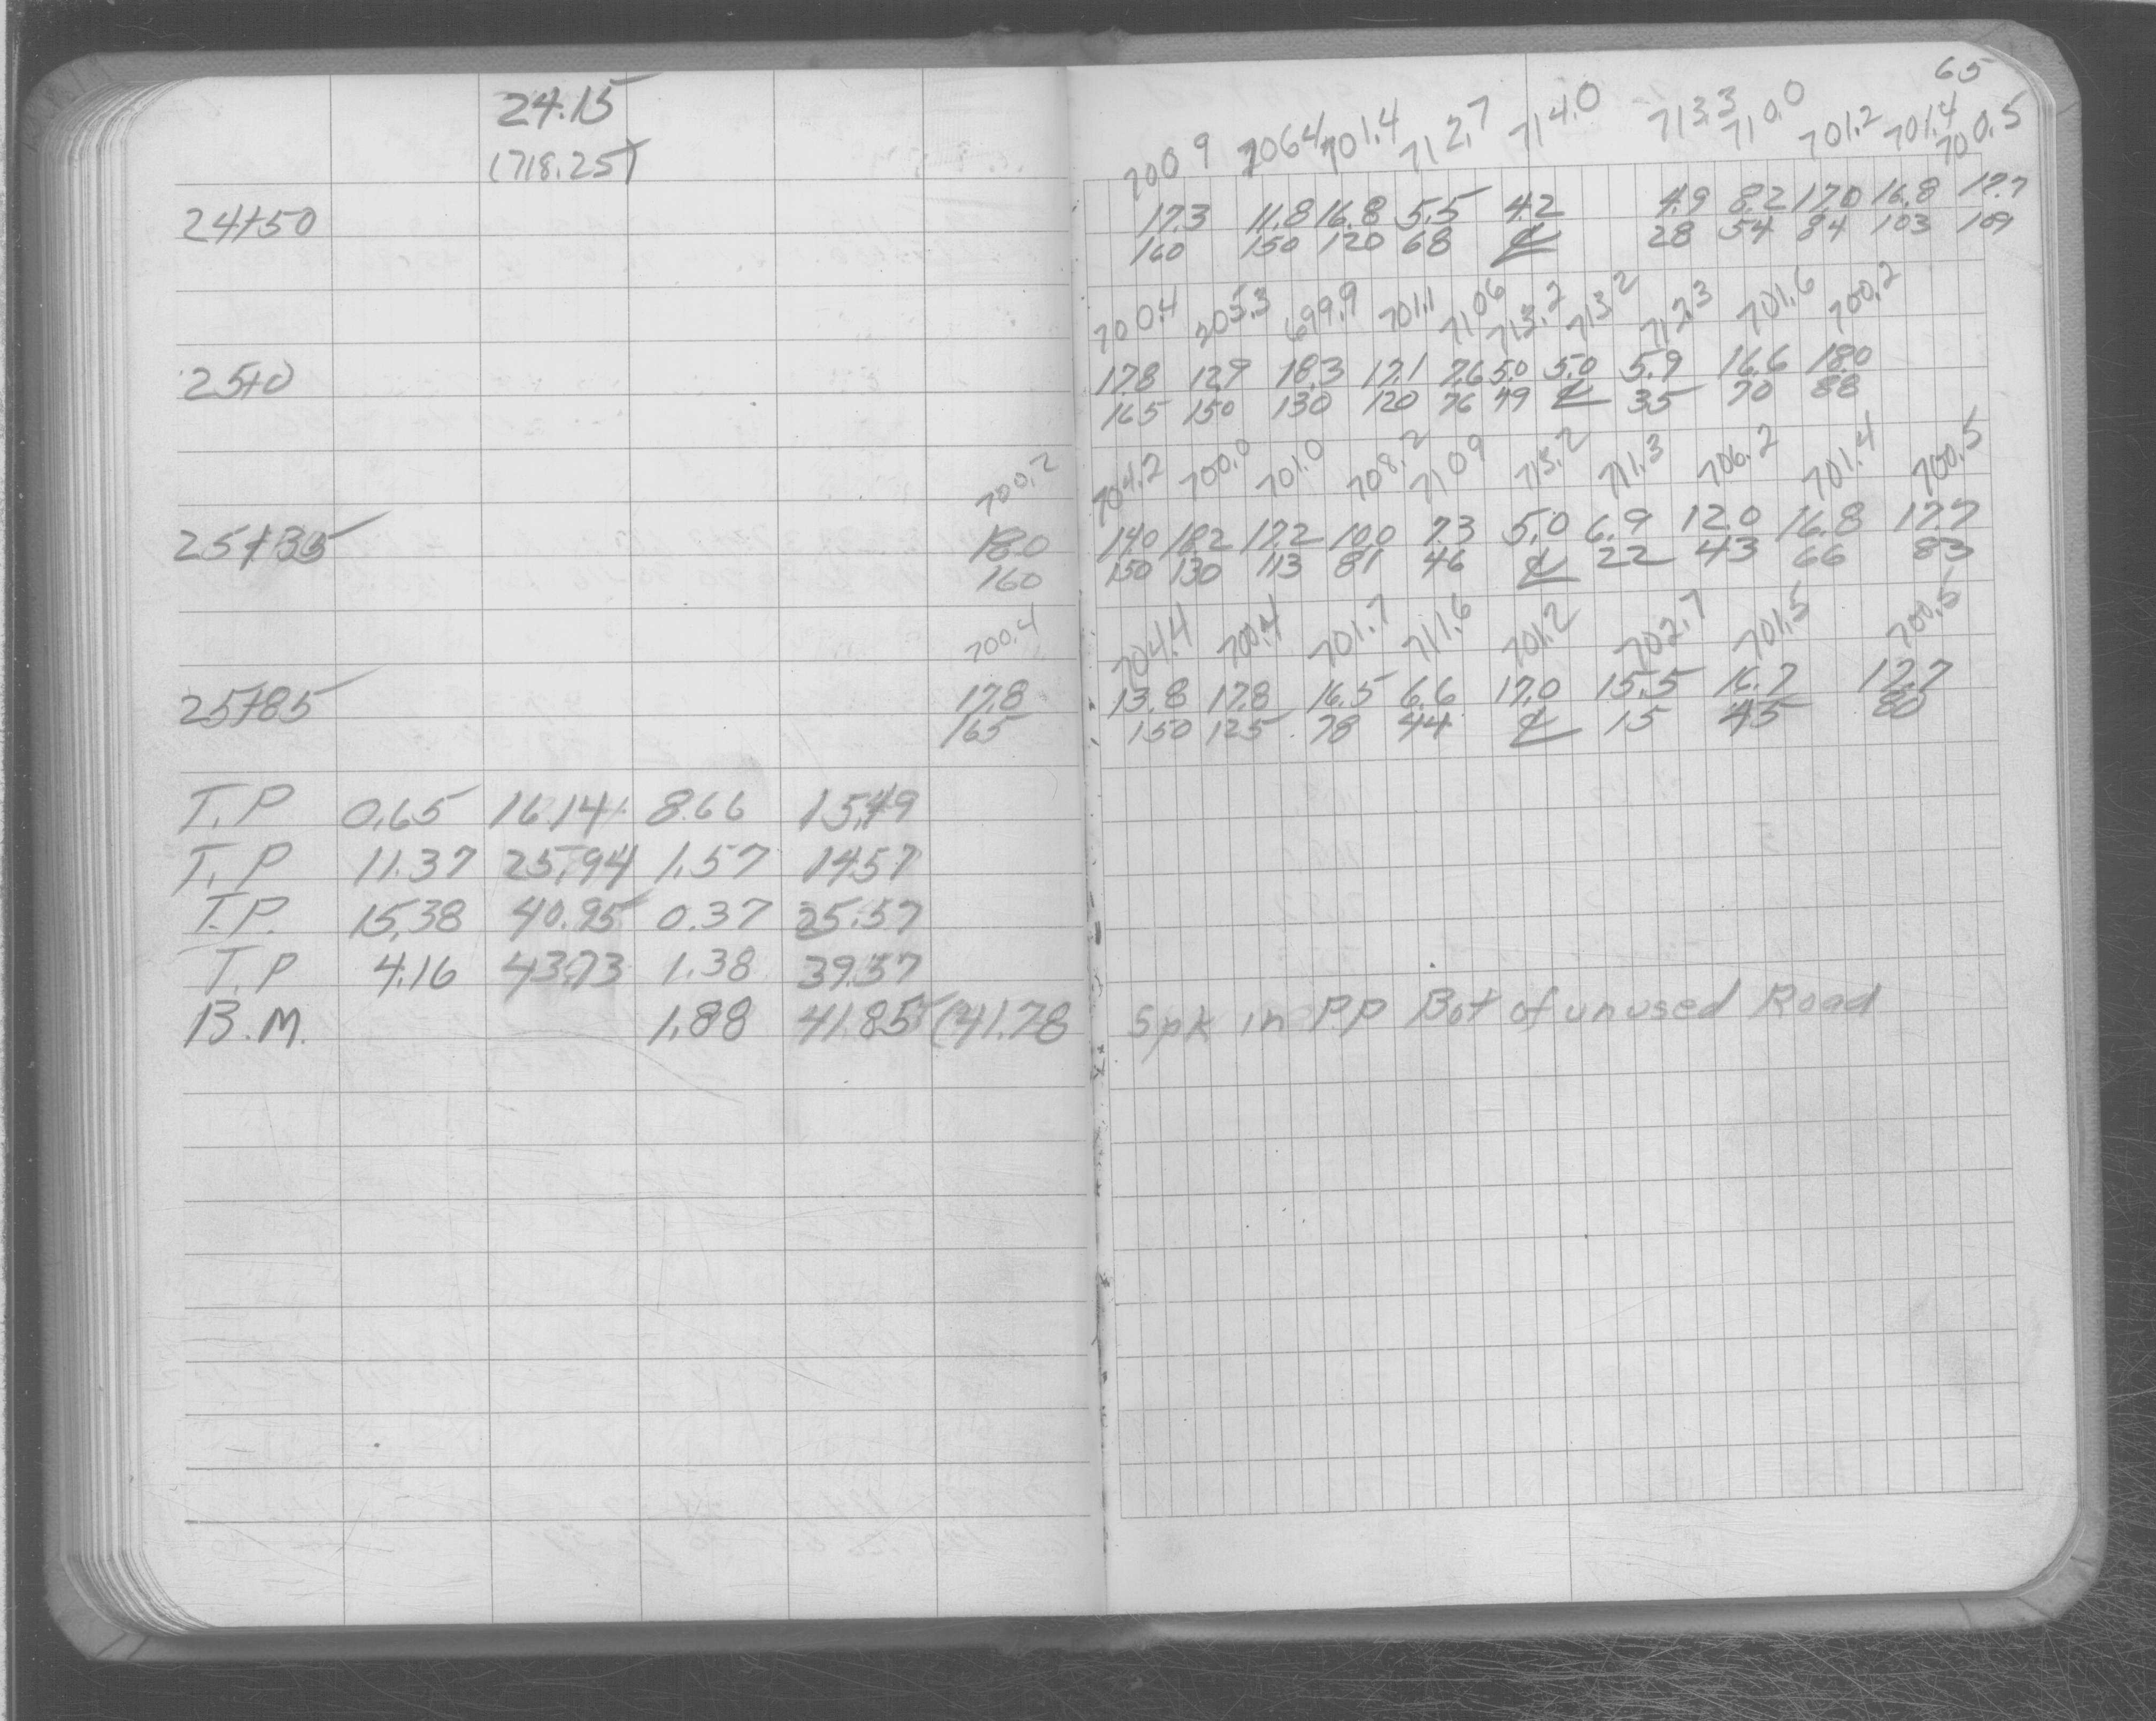 65
24.15
(718.25)
700.9 706.4 701.4 712.7 714.0 713.3 710.0 701.2 701.4 700.5
24+50 17.3 11.8 16.8 5.5 4.2 4.9 8.2 17.0 16.8 17.7
160 150 120 68 ℄ 28 54 84 103 109
700.4 705.3 699.9 701.1 710.6 713.2 713.2 712.3 701.6 700.2
25+0 17.8 12.9 18.3 17.1 7.6 5.0 5.0 5.9 16.6 18.0
165 150 130 120 76 49 ℄ 35 70 88
700.2 704.2 700.0 701.0 708.2 710.9 713.2 711.3 706.2 701.4 700.5
25+35 18.0 14.0 18.2 17.2 10.0 7.3 5.0 6.9 12.0 16.8 17.7
160 150 130 113 81 46 ℄ 22 43 66 83
700.4 704.4 700.4 701.7 711.6 701.2 702.7 701.5 700.5
25+85 17.8 13.8 17.8 16.5 6.6 17.0 15.5 16.7 17.7
165 150 125 78 44 ℄ 15 45 80
T.P 0.65 16.14 8.66 15.49
T.P 11.37 25.94 1.57 14.57
T.P. 15.38 40.95 0.37 25.57
T.P 4.16 43.73 1.38 39.57
B.M. 1.88 41.85 (41.78 Spk in PP Bot of unused Road